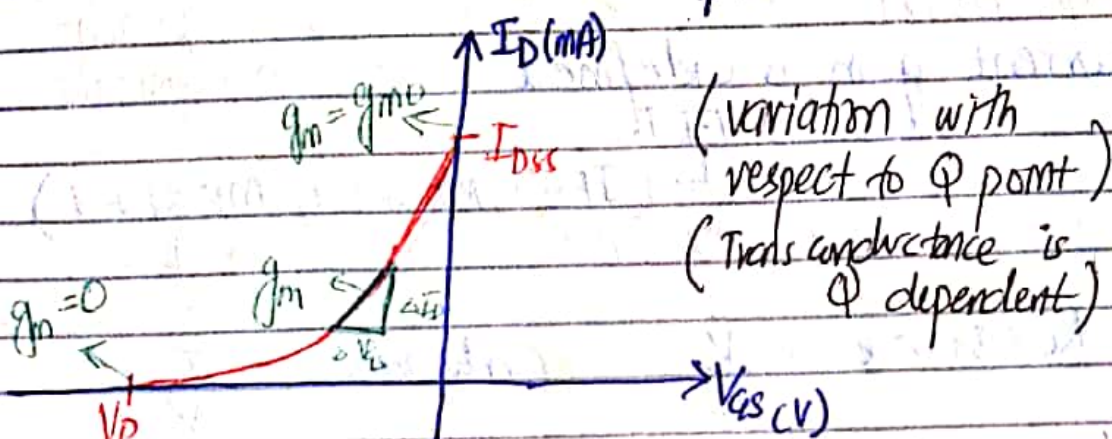 I_D (mA)
g_m = g_m0
I_DSS
(variation with
respect to Q point)
(Transconductance is
Q dependent)
g_m
g_m = 0
V_P
V_GS (V)